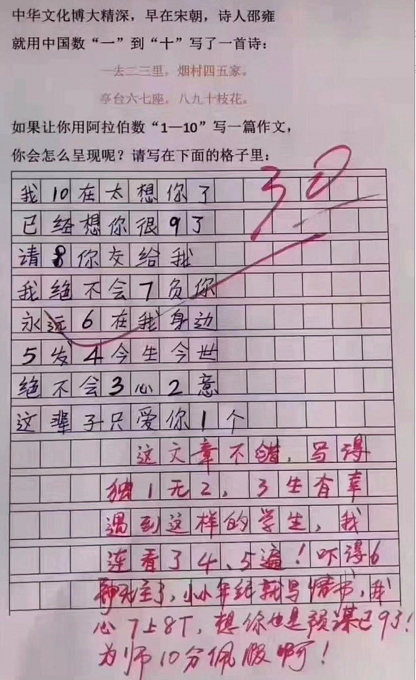 中华文化博大精深，早在宋朝，诗人邵雍
就用中国数“一”到“十”写了一首诗：
一去二三里，烟村四五家。
亭台六七座，八九十枝花。
如果让你用阿拉伯数“1—10”写一篇作文，
你会怎么呈现呢？请写在下面的格子里：
30
我10在太想你了
已经想你很9了
请8你交给我
我绝不会7负你
永远6在我身边
5发4今生今世
绝不会3心2意
这辈子只爱你1个
这文章不错，写得
独1无2，3生有幸
遇到这样的学生，我
连看了4、5遍！吓得6
神无主了，小小年纪就写情书，我
心7上8下，想你也是预谋已9了！
为师10分佩服啊！